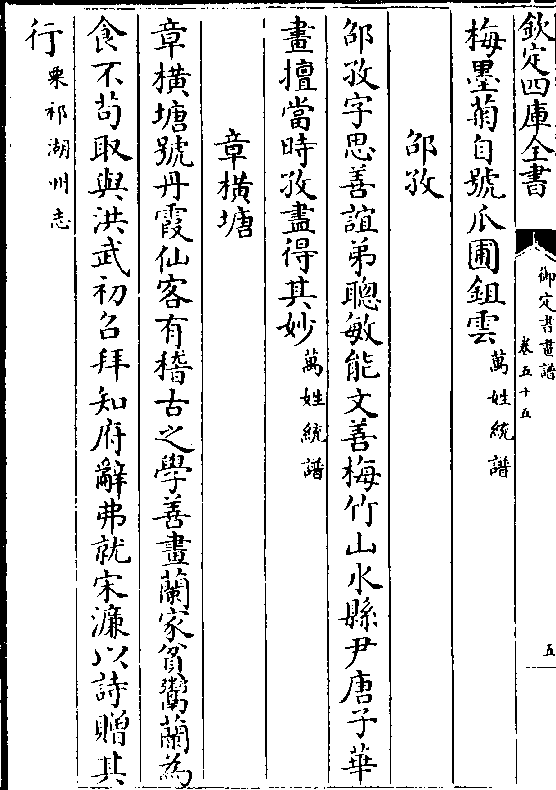 欽定四庫全書
御定書畫譜
卷五十五
五
梅墨菊自號爪圃鉏雲萬姓統譜
邵孜
邵孜字思善誼弟聰敏能文善梅竹山水縣尹唐子華
畫擅當時孜盡得其妙萬姓統譜
章橫塘
章橫塘號丹霞仙客有稽古之學善畫蘭家貧鬻蘭為
食不苟取與洪武初召拜知府辭弗就宋濂以詩贈其
行栗祁湖州志